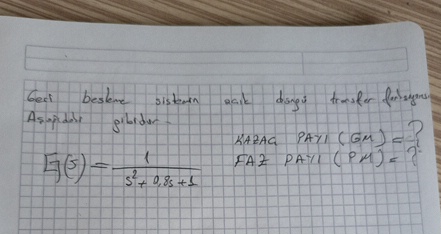 Geri besleme sistemin açık döngü transfer fonksiyonu
Aşağıdaki gibidir.
KAZAG PAYI (GM) = ?
G(s) = 1 / s² + 0,8s + 1
FAZ PAYI (PM) = ?